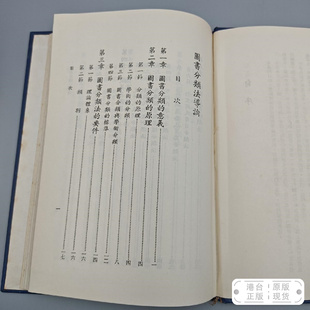 圖書分類法導論
目次
第一章 圖書分類的意義
第二章 圖書分類的原理
第一節 分類的原理
第二節 學術的分類
第三節 圖書分類與學術分類
第四節 圖書分類的標準
第三章 圖書分類法的要件
第一節 理論體系
第二節
目次
一
港台 原版
正版 现货